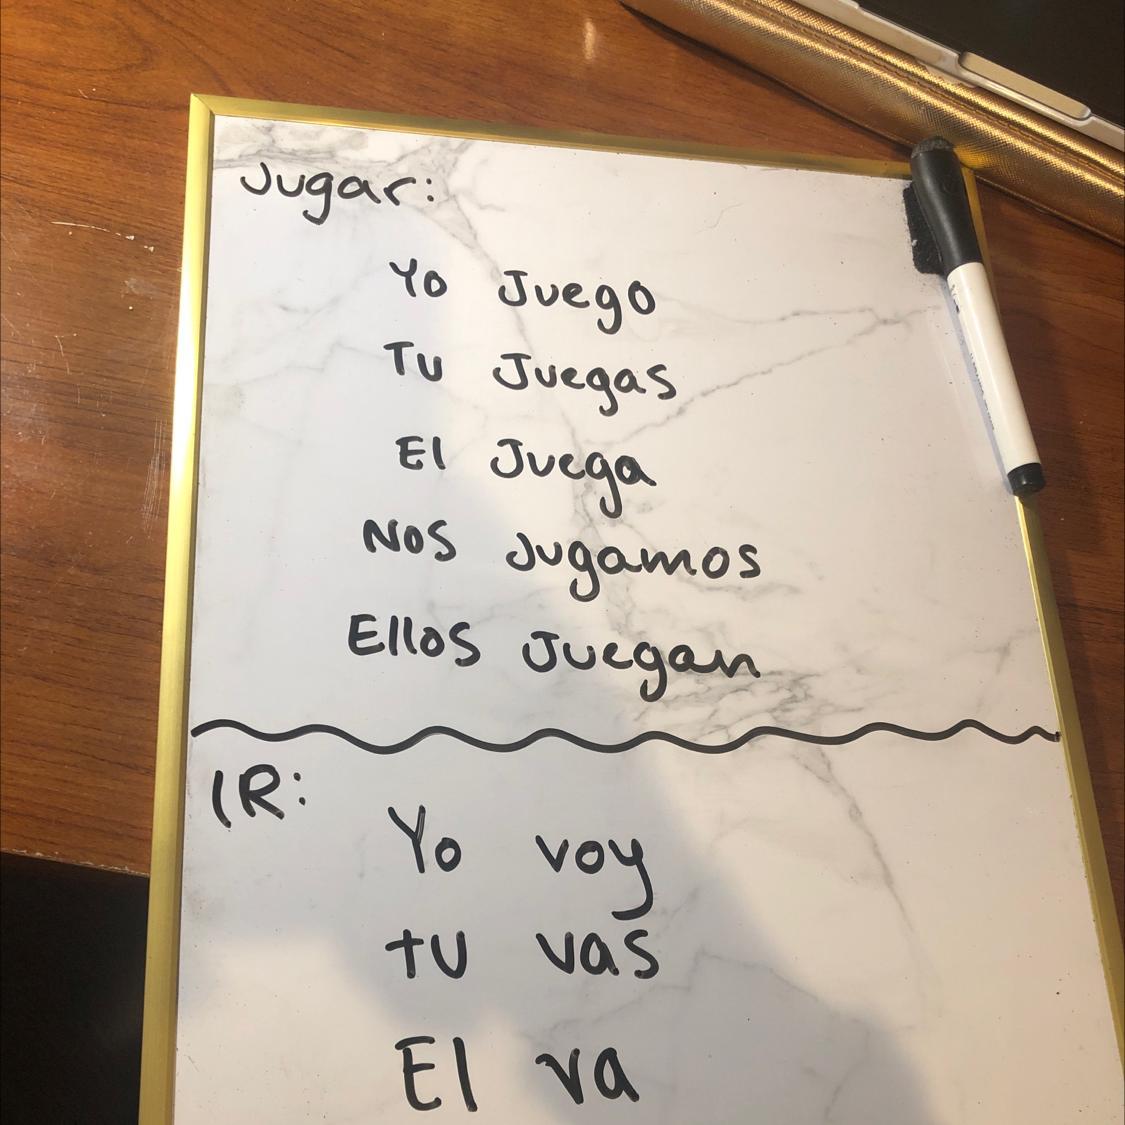 Jugar:
Yo Juego
Tu Juegas
El Juega
Nos jugamos
Ellos Juegan
IR:
Yo voy
tu vas
El va